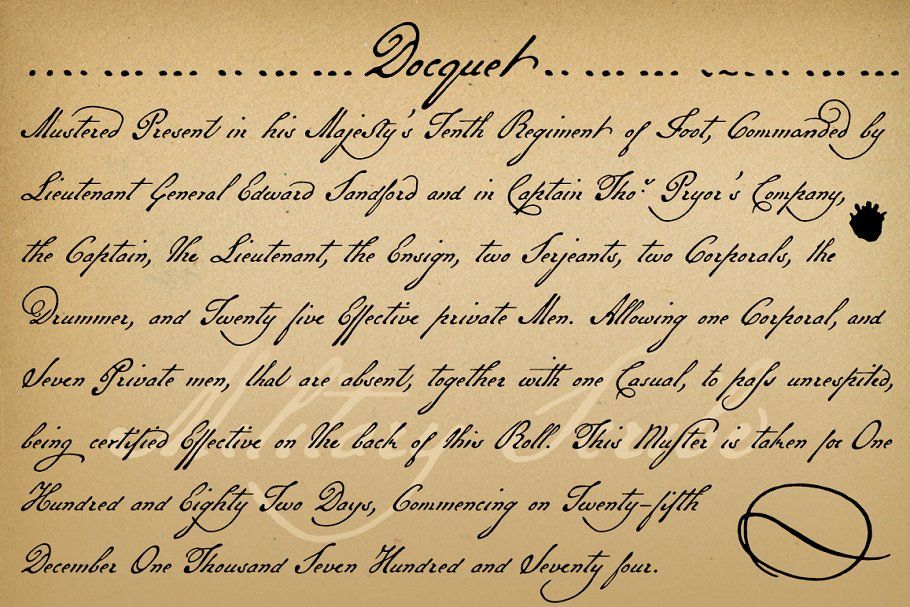 Docquet
Mustered Present in his Majesty's Tenth Regiment of Foot, Commanded by
Lieutenant General Edward Sandford and in Captain Thoˢ Pryor's Company,
the Captain, the Lieutenant, the Ensign, two Serjeants, two Corporals, the
Drummer, and Twenty five Effective private Men. Allowing one Corporal, and
Seven Private men, that are absent, together with one Casual, to paſs unrespited,
being certified Effective on the back of this Roll. This Muſter is taken for One
Hundred and Eighty Two Days, Commencing on Twenty-fifth
December One Thousand Seven Hundred and Seventy four.
Military Scribe